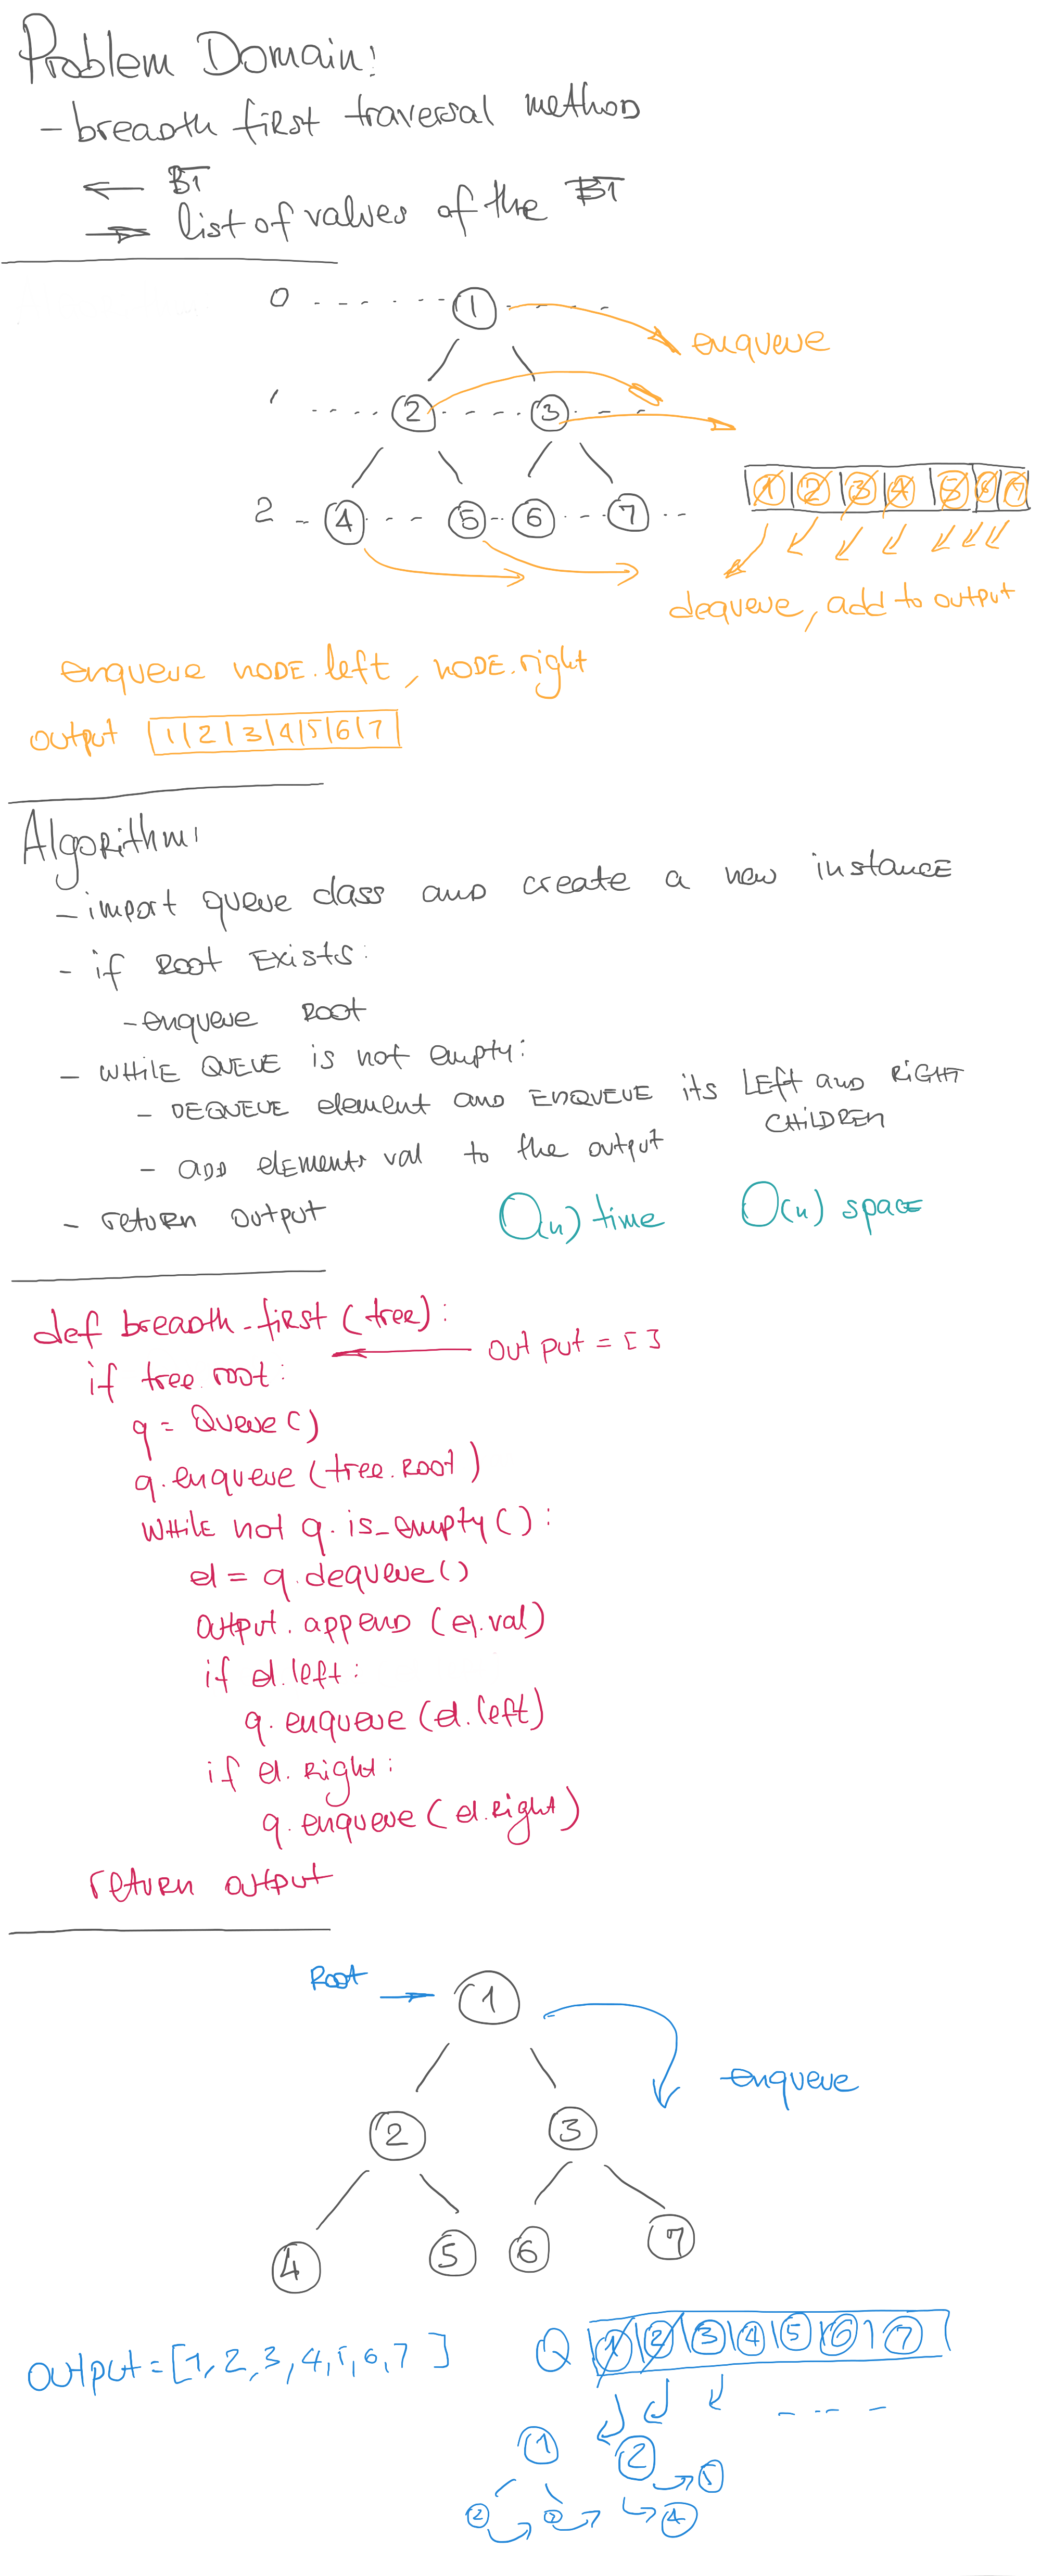 Problem Domain:
- breadth first traversal method
← BT
→ list of values of the BT
0 1
enqueue
1 2 3
2 4 5 6 7
1 2 3 4 5 6 7
dequeue, add to output
enqueue node.left, node.right
output 1 2 3 4 5 6 7
Algorithm:
- import queue class and create a new instance
- if Root Exists:
- enqueue Root
- while QUEUE is not empty:
- DEQUEUE element and ENQUEUE its LEFT and RIGHT
CHILDREN
- add elements val to the output
- return output
O(n) time O(n) space
def breadth_first (tree):
output = []
if tree.root:
q = Queue()
q.enqueue (tree.Root)
while not q.is_empty():
el = q.dequeue()
output.append (el.val)
if el.left:
q.enqueue (el.left)
if el.right:
q.enqueue (el.right)
return output
Root → 1
enqueue
2 3
4 5 6 7
output = [1, 2, 3, 4, 5, 6, 7]
Q 1 2 3 4 5 6 7
1 2 5
2 3 4